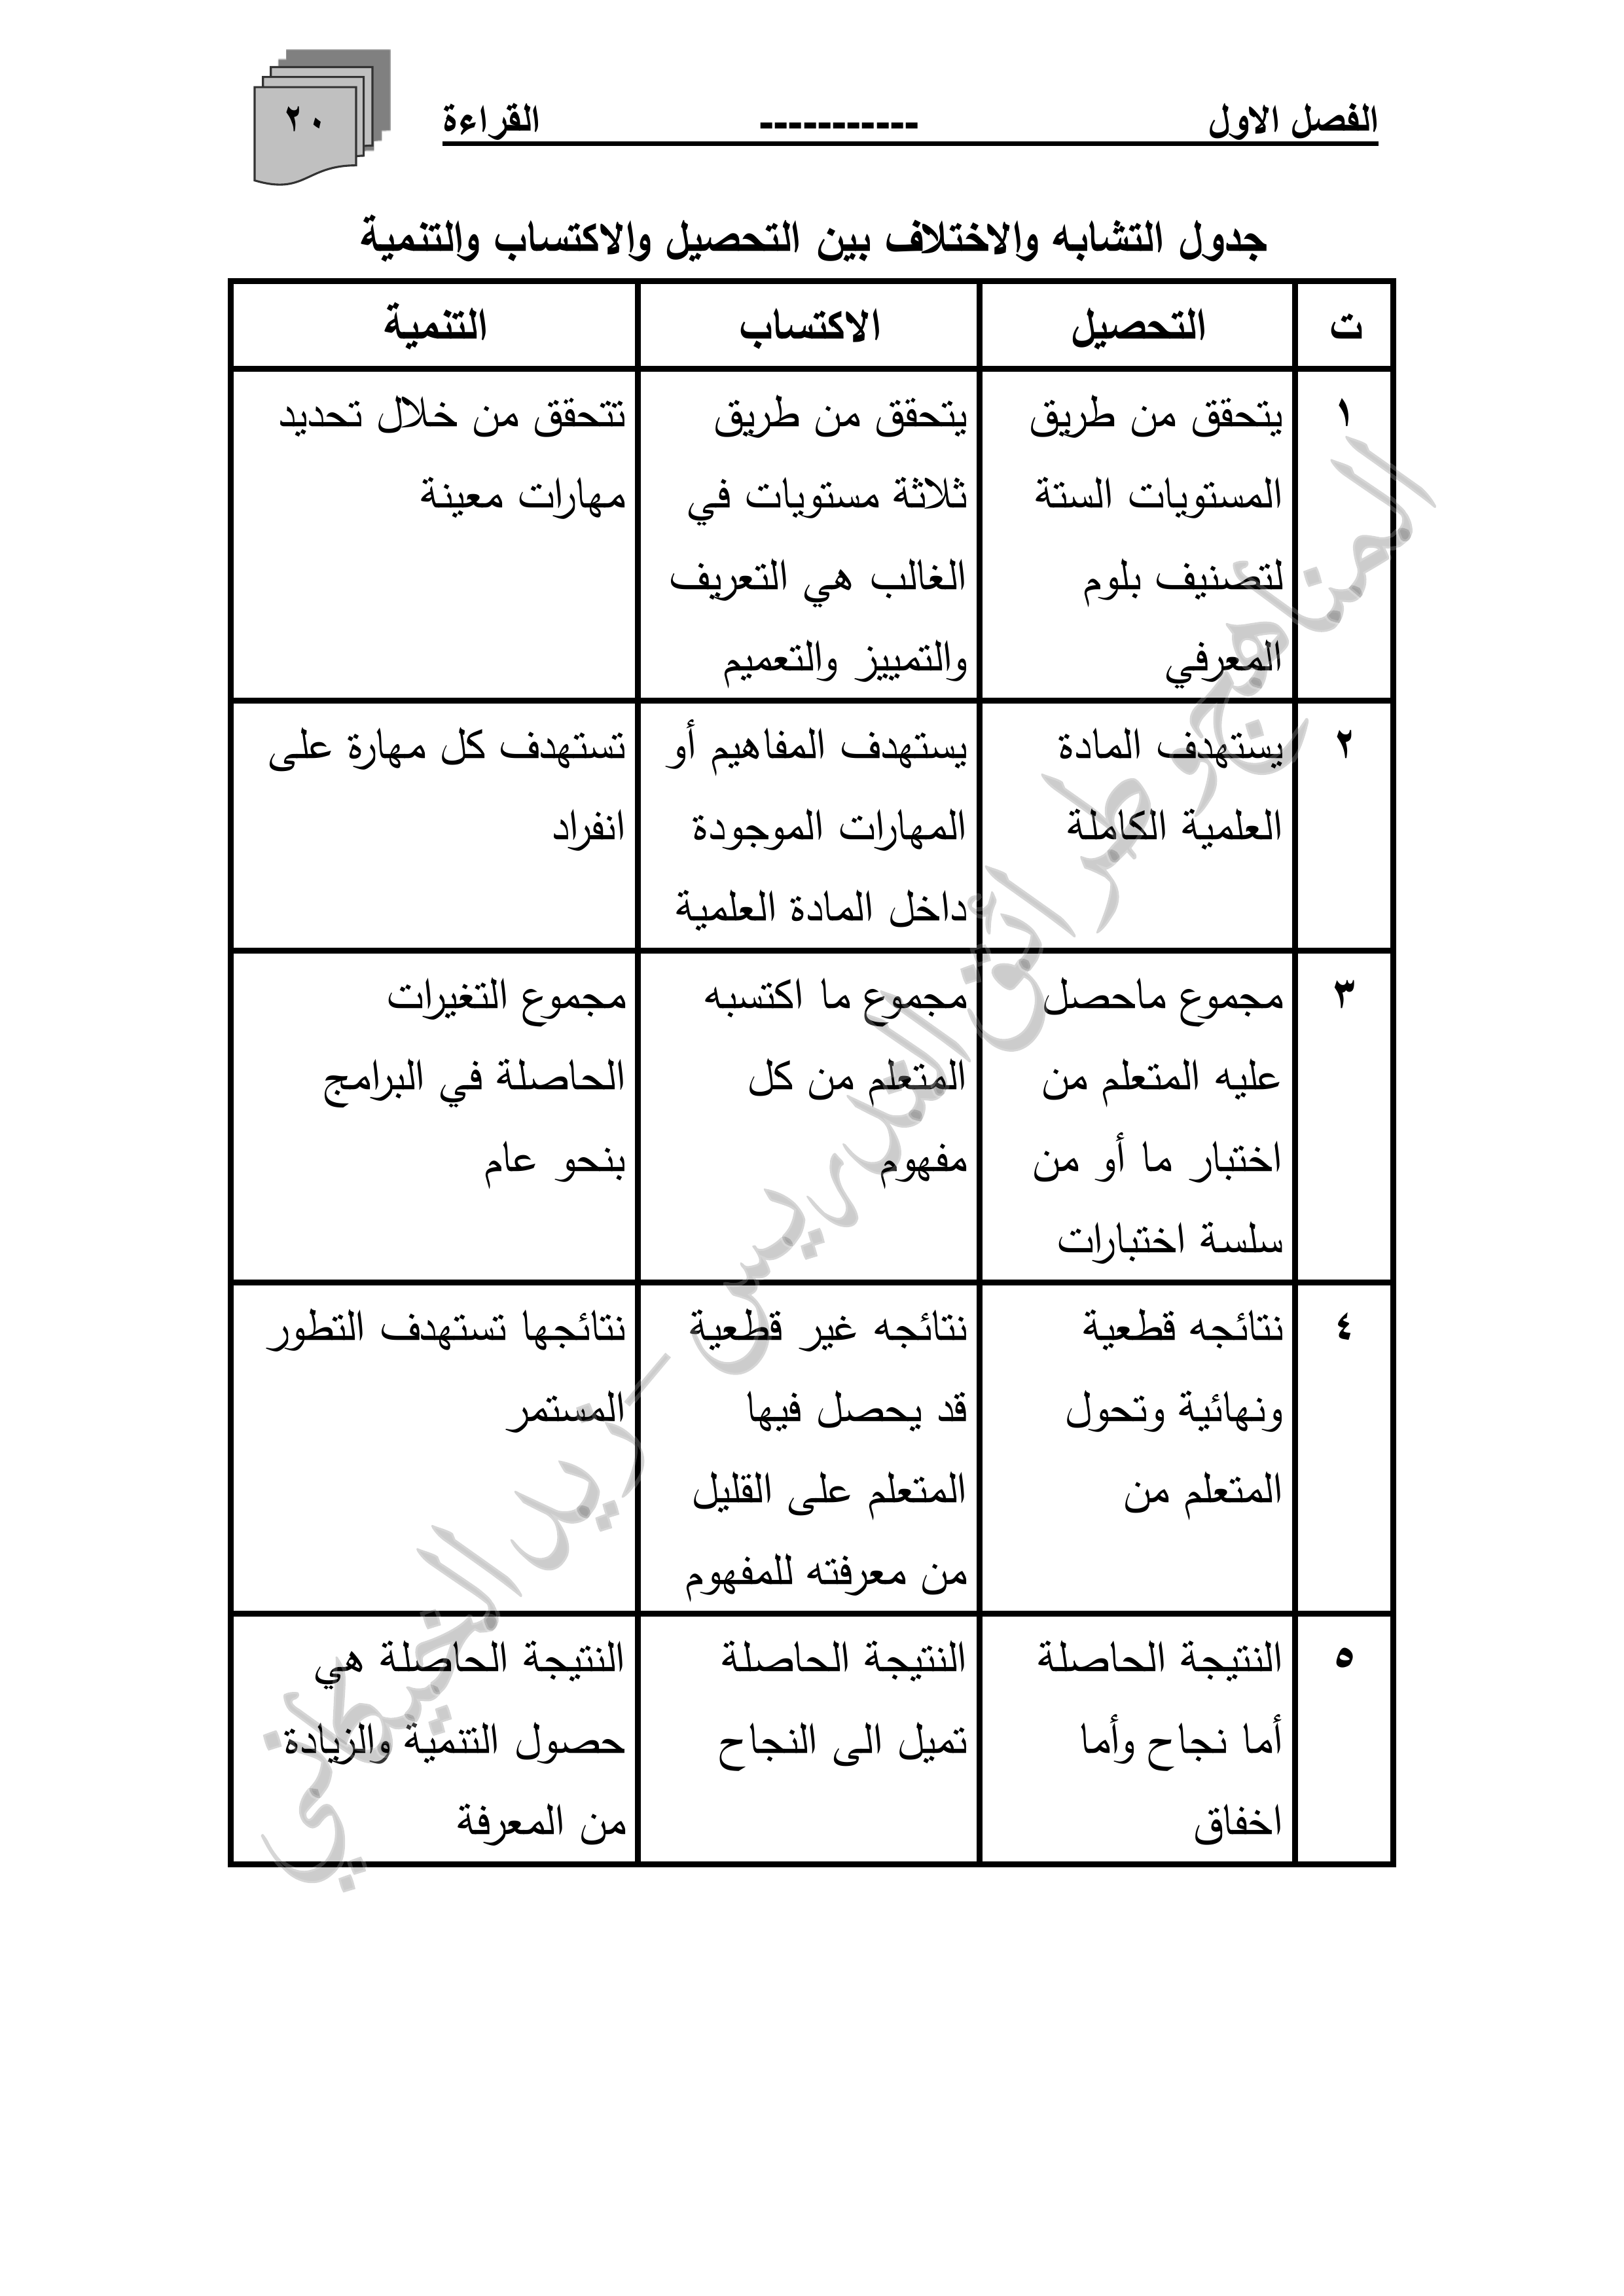 الفصل الاول ----------- القراءة
٢٠
جدول التشابه والاختلاف بين التحصيل والاكتساب والتنمية
ت التحصيل الاكتساب التنمية
١
يتحقق من طريق
المستويات الستة
لتصنيف بلوم
المعرفي
يتحقق من طريق
ثلاثة مستويات في
الغالب هي التعريف
والتمييز والتعميم
تتحقق من خلال تحديد
مهارات معينة
٢
يستهدف المادة
العلمية الكاملة
يستهدف المفاهيم أو
المهارات الموجودة
داخل المادة العلمية
تستهدف كل مهارة على
انفراد
٣
مجموع ماحصل
عليه المتعلم من
اختبار ما أو من
سلسة اختبارات
مجموع ما اكتسبه
المتعلم من كل
مفهوم
مجموع التغيرات
الحاصلة في البرامج
بنحو عام
٤
نتائجه قطعية
ونهائية وتحول
المتعلم من
نتائجه غير قطعية
قد يحصل فيها
المتعلم على القليل
من معرفته للمفهوم
نتائجها تستهدف التطور
المستمر
٥
النتيجة الحاصلة
أما نجاح وأما
اخفاق
النتيجة الحاصلة
تميل الى النجاح
النتيجة الحاصلة هي
حصول التنمية والزيادة
من المعرفة
المناهج وطرائق التدريس - زيد الخيكاني